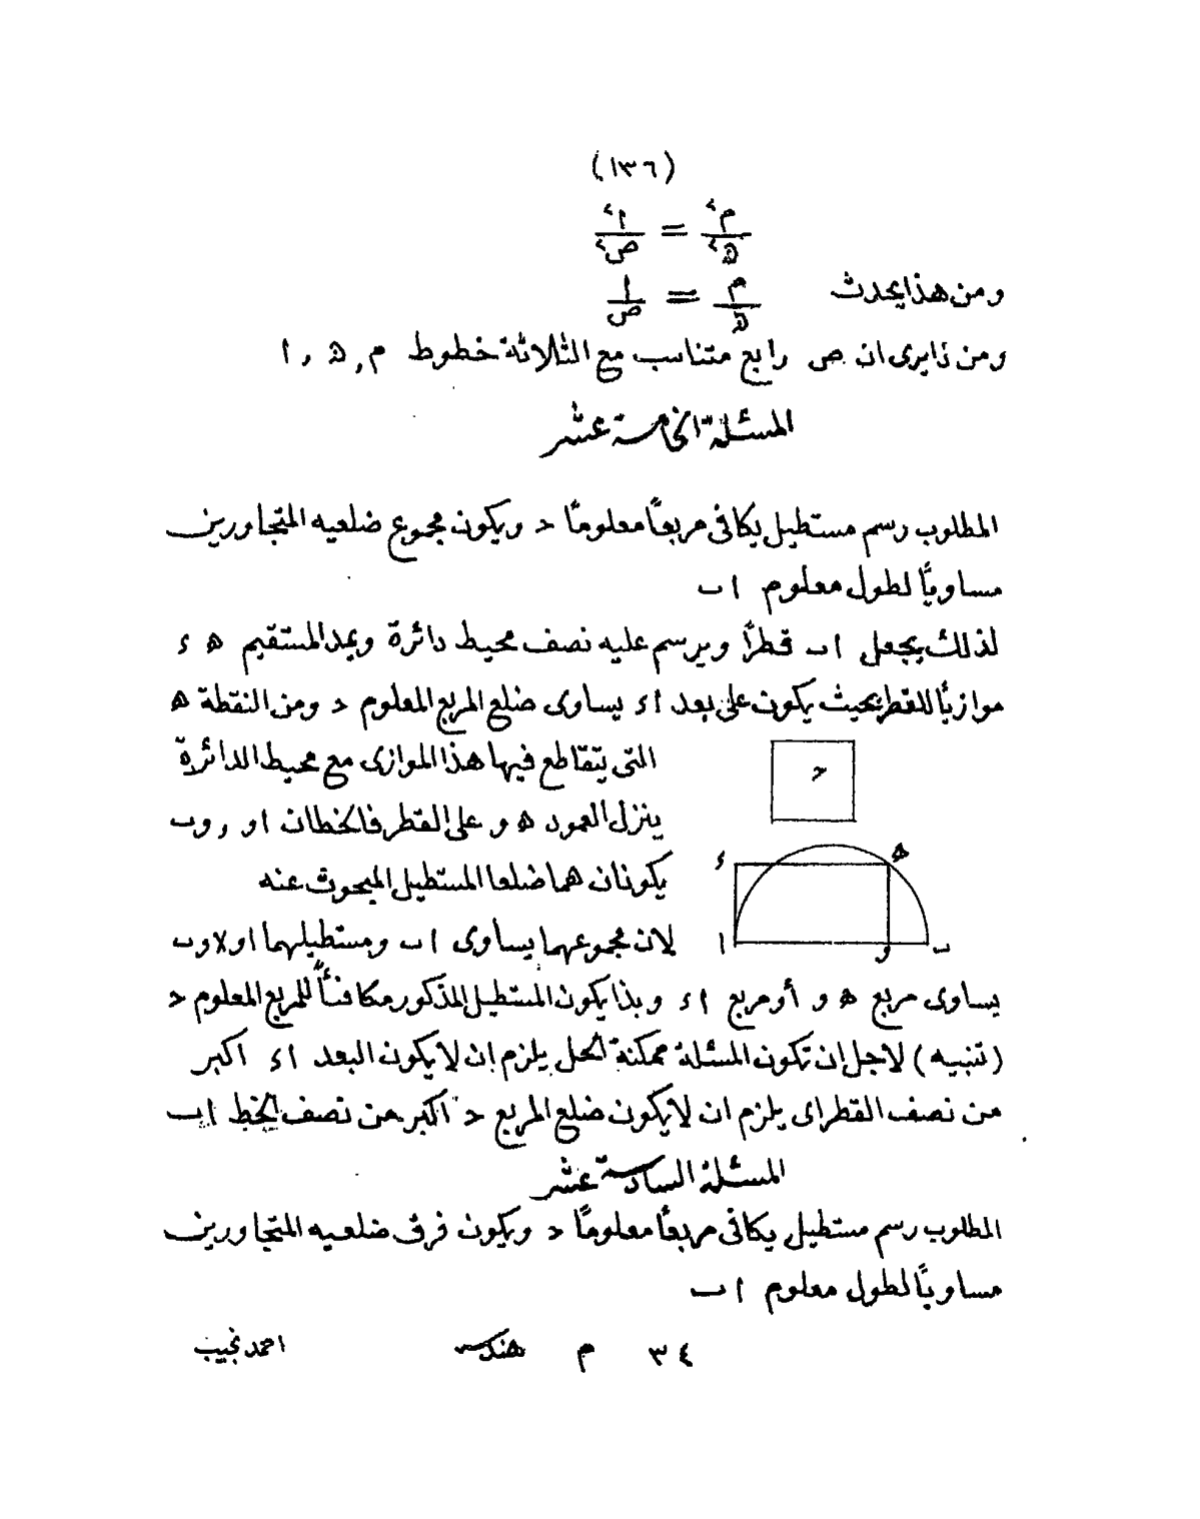 (١٣٦)
م٢/ھ٢ = ا٢/ص٢
ومن هذا يحدث م/ھ = ا/ص
ومن ذا يرى ان ص رابع متناسب مع الثلاثة خطوط م , ھ , ا
المسئلة الخامسة عشر
المطلوب رسم مستطيل يكافئ مربعًا معلومًا ح ويكون مجموع ضلعيه المتجاورين
مساويًا لطول معلوم ا ب
لذلك يجعل ا ب قطرًا ويرسم عليه نصف محيط دائرة ويمد المستقيم ھ ء
موازيًا للقطر بحيث يكون على بعد ا ء يساوى ضلع المربع المعلوم ح ومن النقطة ھ
التى يتقاطع فيها هذا الموازى مع محيط الدائرة
ينزل العمود ھ و على القطر فالخطان ا و , و ب
يكونان هما ضلعا المستطيل المبحوث عنه
لان مجموعهما يساوى ا ب ومستطيلهما ا و × و ب
يساوى مربع ھ و أو مربع ا ء وبذا يكون المستطيل المذكور مكافئاً للمربع المعلوم ح
(تنبيه) لاجل ان تكون المسئلة ممكنة الحل يلزم ان لا يكون البعد ا ء اكبر
من نصف القطر اى يلزم ان لا يكون ضلع المربع ح اكبر من نصف الخط ا ب
ح
ء ھ
ا و ب
المسئلة السادسة عشر
المطلوب رسم مستطيل يكافئ مربعًا معلومًا ح ويكون فرق ضلعيه المتجاورين
مساويًا لطول معلوم ا ب
٣٤ م هندسه احمد نجيب